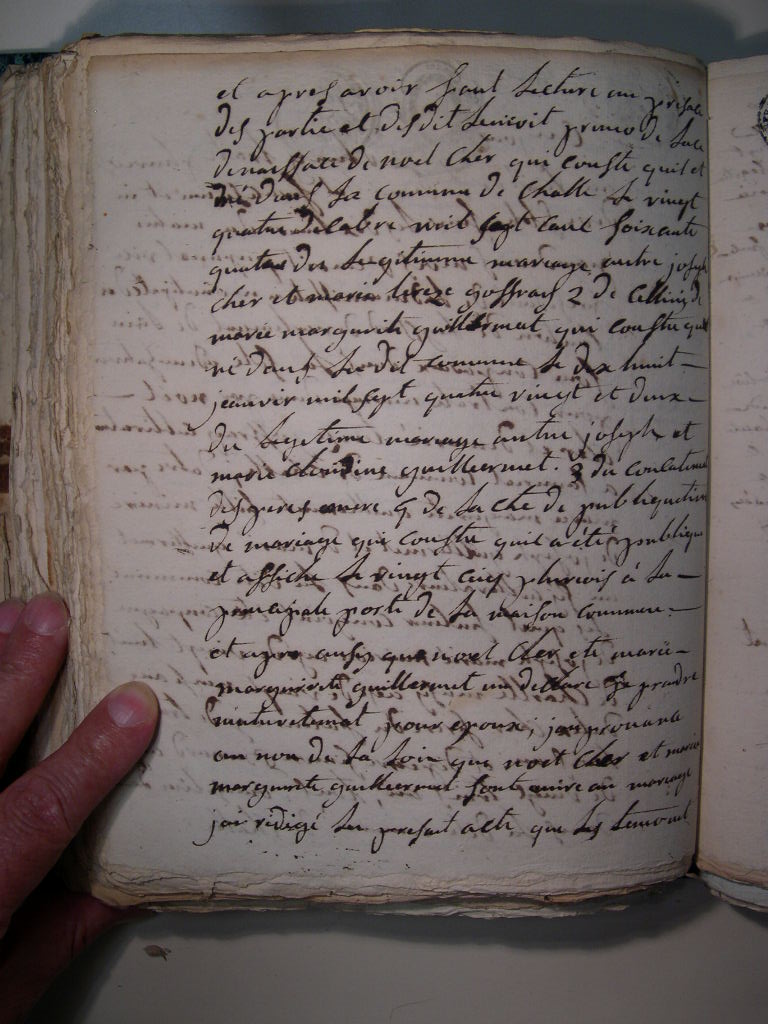 et apres avoir fait lecture en presale
des partie et desdit temoit primo de lace
denaissace de noel Cher qui conste quil et
né dans la commune de Challe le vingt
quatre decabre mil sept cent soixante
quatre du legitimme mariage entre joseph
cher et marie goffray 2 de de
marie margurite guillermet qui conste quil
né dans le dit commune le dix huit
jeanvir mil sept quatre vingt et deux
du legitime mariage antre joseph et
marie claudine guillermet. 3 du
des peres mere 4 de la cte de publiquation
de mariage qui conste quil a été publique
et affiche le vingt cinq pluviois à la
principale porte de la maison commune
et apre ausy que noel Cher ete marie
marguirite guillermet on declare se prandre
muturelemat pour epoux, jai prouonce
au non de la loix que noel Cher et marie
margurite guillermet sont unire an mariage
jai redigé le presat acte que les temoint